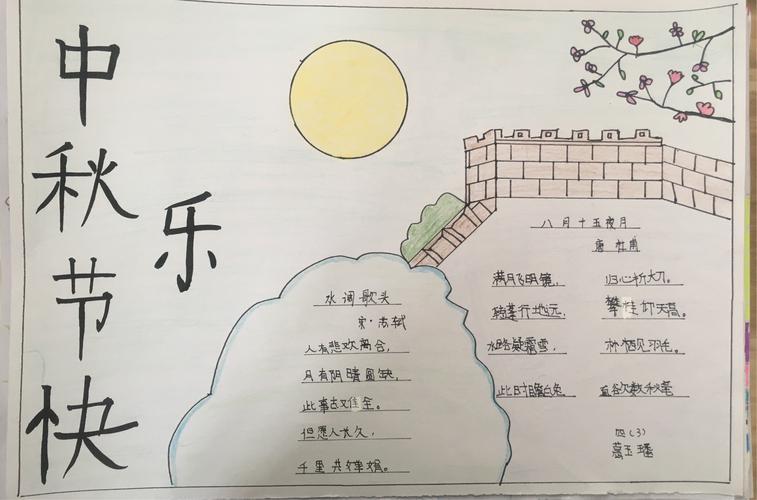 中秋节快乐
水词歌头
宋·苏轼
人有悲欢离合,
月有阴晴圆缺,
此事古难全。
但愿人长久,
千里共婵娟。
八月十五夜月
唐 杜甫
满月飞明镜, 归心折大刀。
转蓬行地远, 攀桂仰天高。
水路疑霜雪, 林栖见羽毛。
此时瞻白兔, 直欲数秋毫
四(3)